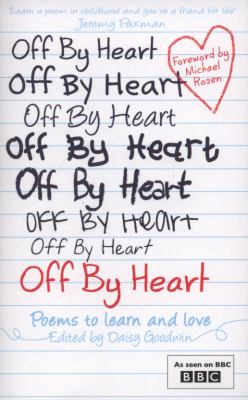 "Learn a poem in childhood and you've a friend for life"
Jeremy Paxman
Off By Heart
Off By Heart
Foreword by
Michael
Rosen
Off By Heart
Off By Heart
Off By Heart
Off By Heart
Off By Heart
Off By Heart
Poems to learn and love
Edited by Daisy Goodwin
As seen on BBC
BBC